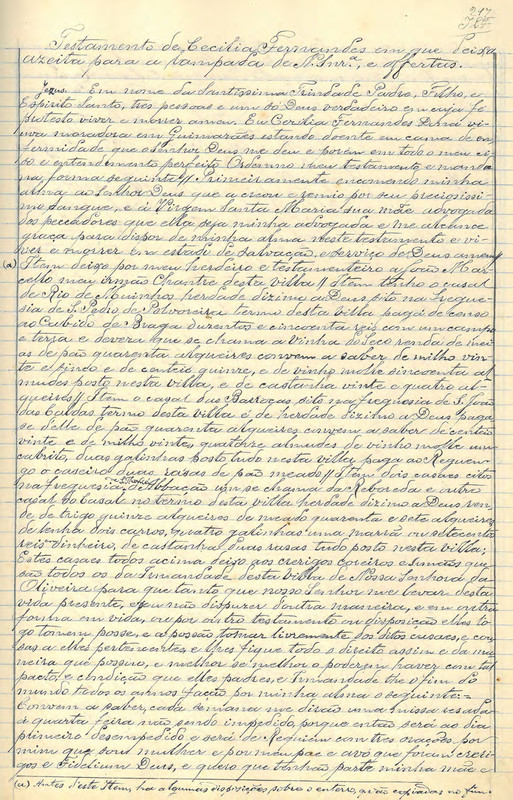 247
Testamento de Cecilia Fernandes em que deixa
azeite para a lampada de N. Snrª, e offertas.
Jezus. Em nome da Santissima Trindade Padre, Filho, e
Espirito Santo, tres pessoas e um só Deus verdadeiro em cuja fé
protesto viver e morrer amen. Eu Cecilia Fernandes Dona vi-
uva moradora em Guimarães estando doente em cama de en-
fermidade que o Senhor Deus me deu e porem em todo o meu si-
zo e entendimento perfeito Ordenno meu testamento e manda
na forma seguinte // Primeiramente encomendo minha
alma ao Senhor Deus que a creou e remio por seu preciosissi-
mo sangue, e á Virgem Santa Maria sua mãe advogada
dos peccadores que ella seja minha advogada e me alcance
graça para dispor de minha alma neste testamento e vi-
ver e morrer em estado de salvação, e serviço de Deus amen //
(a) Item deixo por meu herdeiro e testamenteiro a João Mar-
callo meu irmão Chantre desta villa // Item tenho o casal
de Rio de Muinhos herdade dizima a Deus sito na fregue-
sia de S. Pedro de Polvoreira termo desta villa paga de censo
ao Cabido de Braga duzentos e cincoenta reis com um campo
e terja e deveza que se chama a Vinha do Seco renda de mei-
as de pão quarenta alqueires convem a saber de milho vin-
te e findo e de centeio quinze, e de vinho molle sincoenta al-
mudes posto nesta villa, e de castanha vinte e quatro al-
queires // Item o casal das Barrocas sito na freguesia de S. João
das Caldas termo desta villa é de herdade dizima a Deus paga
se delle de pão quarenta alqueires convem a saber de centeio
vinte e de milho vinte, quatorze almudes de vinho molle um
cabrito, duas galinhas posto tudo nesta villa, paga ao Reguen-
go o caseiro duas rasas de pão meado // Item dois casaes citos
na freguesia de S. Thomé Abbação um se chama da Reboreda e outro
casal do Casal no termo desta villa herdade dizimo a Deus ren-
de de trigo quinze alqueires de meado quarenta e sete alqueires
de lenha dois carros, quatro galinhas uma marrã ou setecentos
reis dinheiro, de castanha duas rasas tudo posto nesta villa;
Estes casaes todos acima deixo aos crerigos coreiros e Irmãos que
são todos os da Irmandade desta villa de Nossa Senhora da
Oliveira para que tanto que nosso Senhor me levar desta
vida presente, e eu não dispuzer doutra maneira, e em outra
forma em vida, ou por outro testamento ou disposição elles lo-
go tomem posse, e a possão tomar livremente dos ditos casaes, e cou-
sas a elles pertencentes e lhes fique todo o direito assim e da ma-
neira que possuo, e melhor se melhor o poderem haver com tal
pacto, e condição que elles padres, e Irmandade the o fim do
mundo todos os annos fação por minha alma o seguinte:=
Convem a saber, cada semana me dirão uma missa resada
á quarta feira não sendo impedido, porque então será ao dia
primeiro desempedido e será de Requiem com tres orações por
mim que sou mulher e por meu pae e avô que foram creri-
gos e Fidelium Deus, e quero que tenhão parte minha mãe e
(a) Antes d'este Item, ha algumas disposições, sobre o enterro, q. vão copiadas no fim.